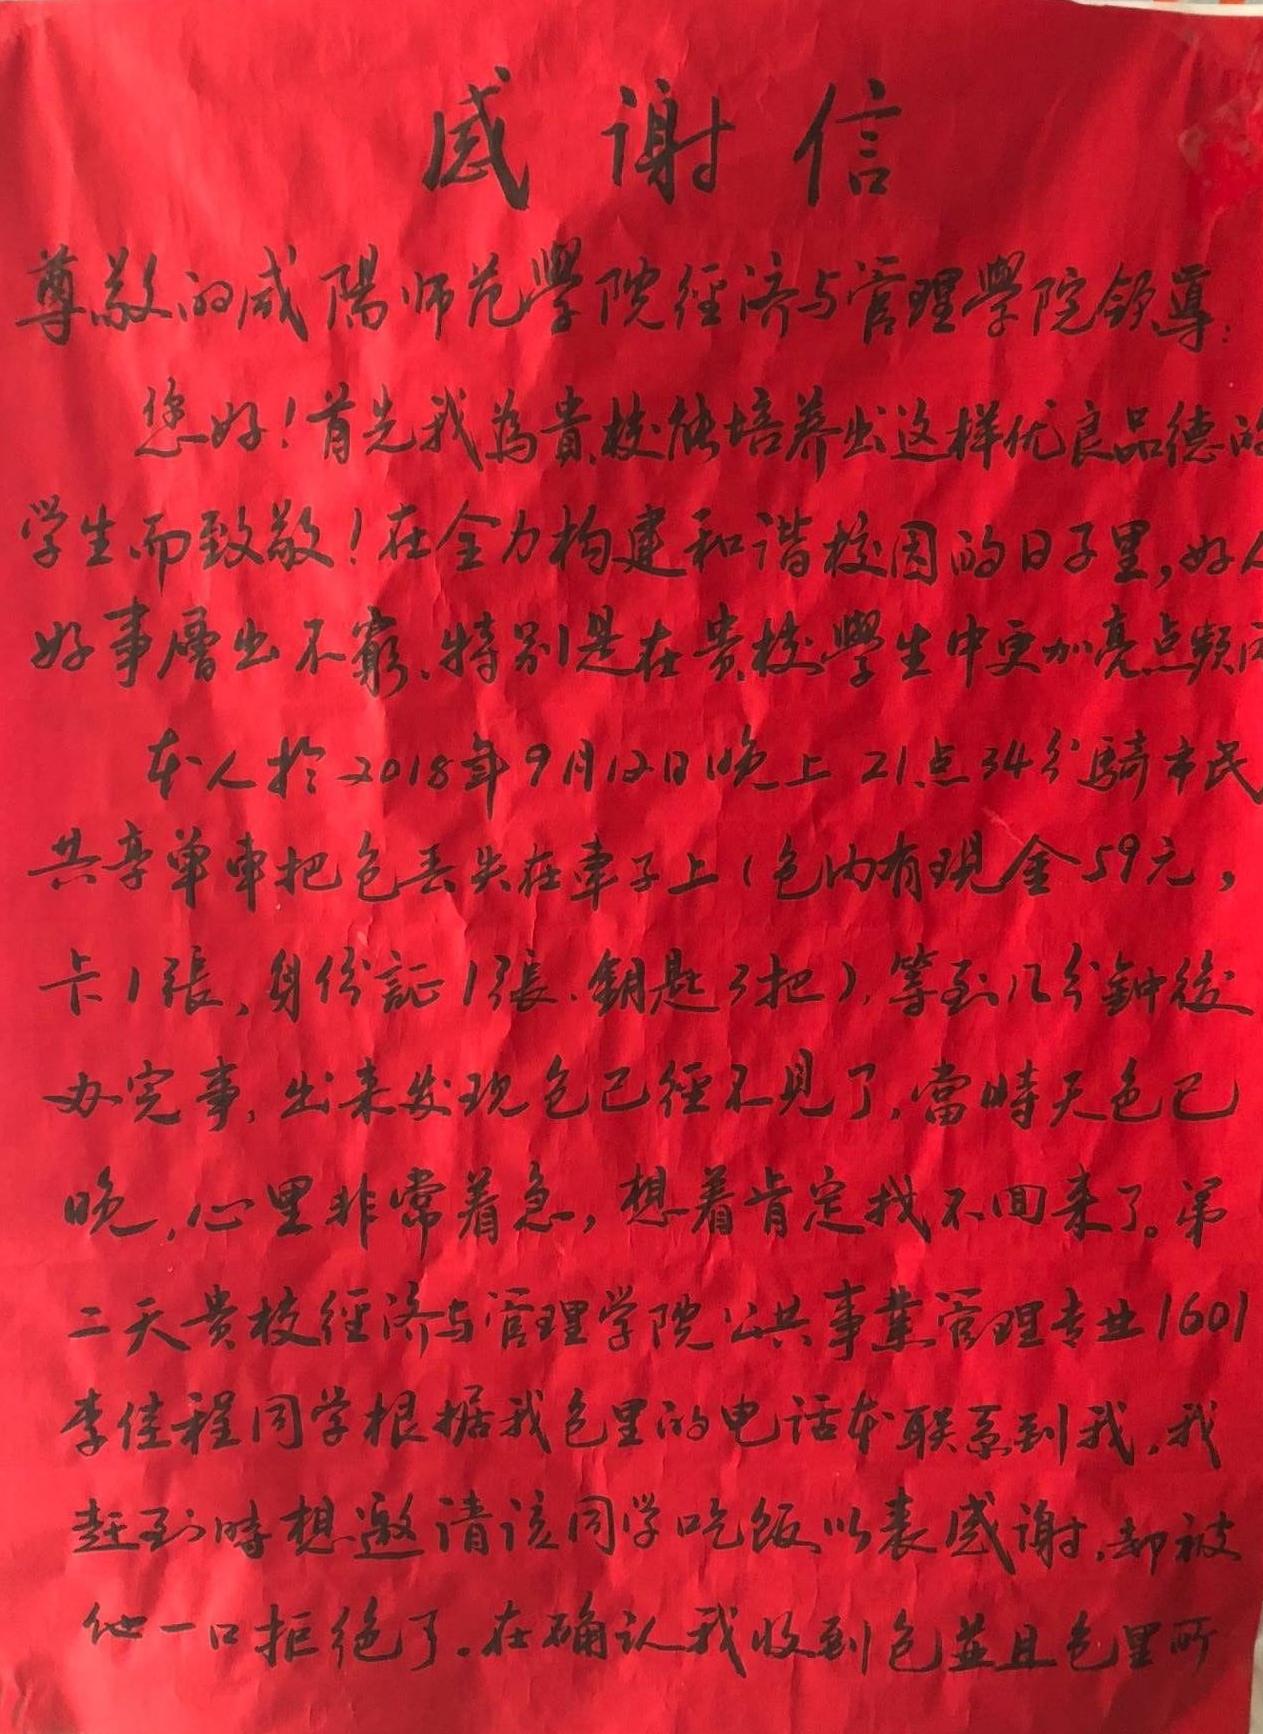 感谢信
尊敬的咸陽师范學院經济与管理學院领導:
您好!首先我為貴校能培养出这样优良品德的
学生而致敬!在全力构建和谐校园的日子里,好人
好事層出不窮、特别是在贵校學生中更加亮点頻
本人於2018年9月12日晚上21点34分騎市民
共享单車把包丢失在車子上(包内有現金59元,
卡1張,身份証1張.鑰匙3把),等到几分鐘後
办完事,出来发现包已經不見了,當時天色已
晚,心里非常着急,想着肯定找不回来了。第
二天贵校經济与管理学院公共事業管理专业1601
李佳程同学根据我包里的电话本联系到我,我
赶到時想邀请该同学吃饭以表感谢,却被
他一口拒绝了.在确认我收到包並且包里所